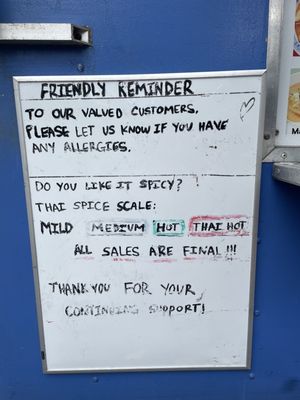 FRIENDLY REMINDER
TO OUR VALUED CUSTOMERS,
PLEASE LET US KNOW IF YOU HAVE
ANY ALLERGIES.
DO YOU LIKE IT SPICY?
THAI SPICE SCALE:
MILD MEDIUM HOT THAI HOT
ALL SALES ARE FINAL!!!
THANK YOU FOR YOUR
CONTINUING SUPPORT!